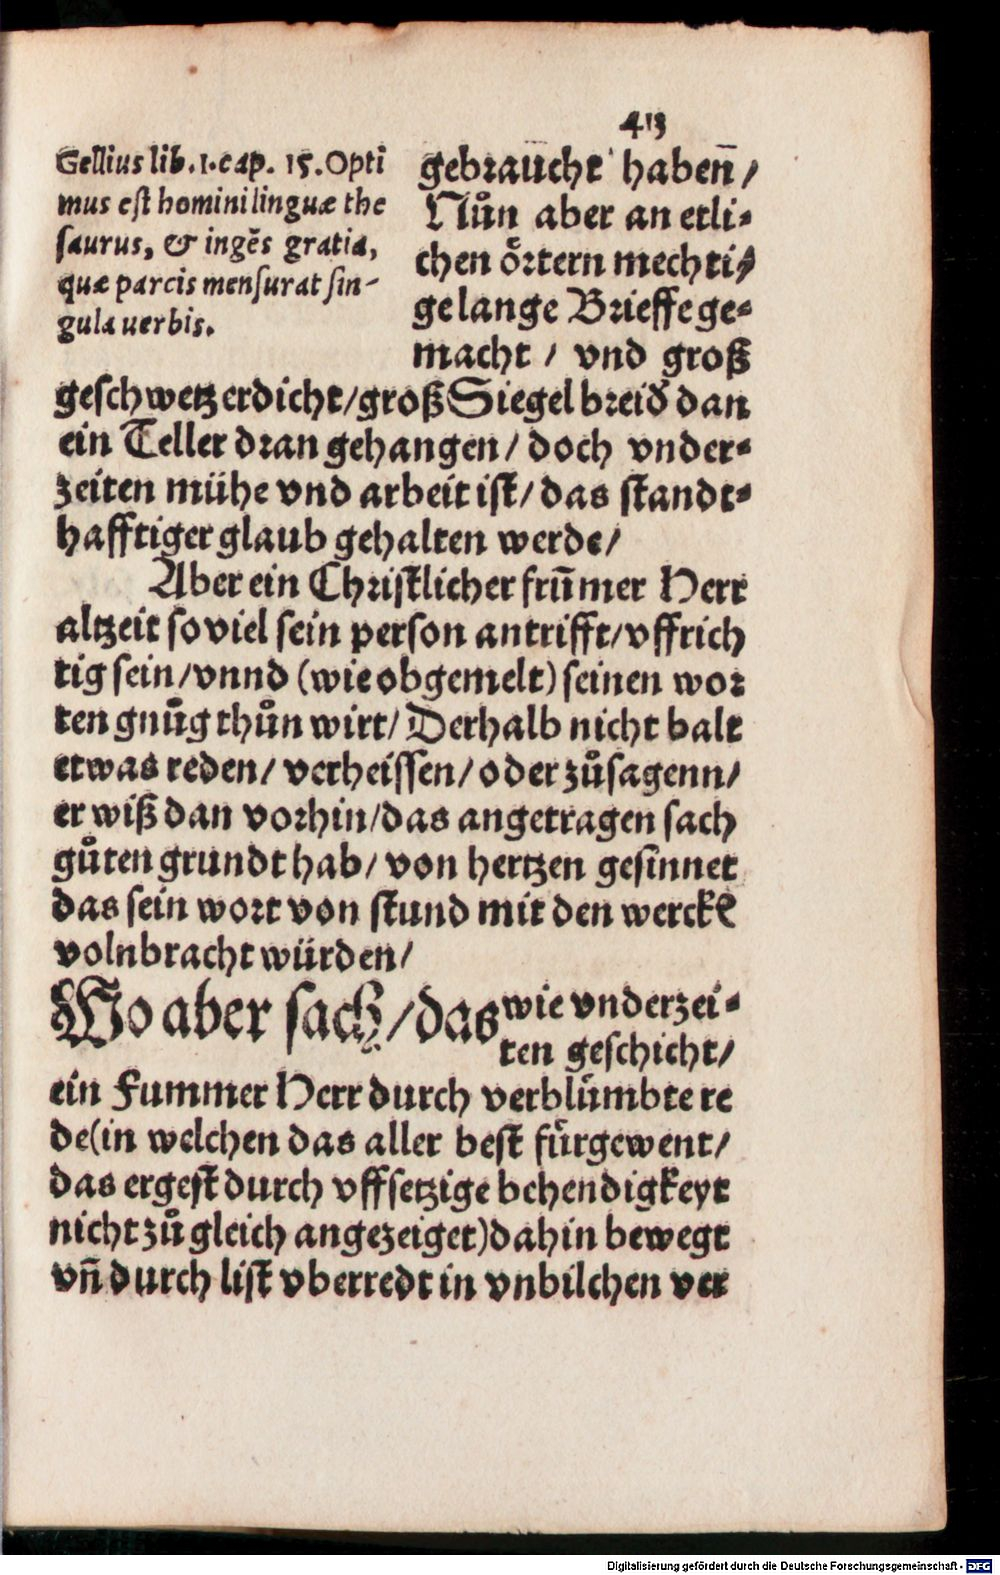 413
Gellius lib. 1. cap. 15. Opti
mus est homini linguæ the
saurus, & ingēs gratia,
quæ parcis mensurat sin-
gula uerbis.
gebraūcht habenn̄/
Nůn aber an etli⸗
chen oͤrtern mechti⸗
ge lange Brieffe ge⸗
macht / vnd groß
geschwetz erdicht/groß Siegel breid dan
ein Teller dran gehangen/ doch vnder⸗
zeiten mühe vnd arbeit ist/ das standt⸗
hafftiger glaub gehalten werde/
Aber ein Christlicher frūmer Herr
altzeit so viel sein person antrifft/ vffrich
tig sein/ vnnd (wie obgemelt) seinen wor
ten gnůg thůn wirt/ Derhalb nicht balt
etwas reden/ verheissen/ oder zůsagenn/
er wiß dan vorhin/das angetragen sach
gůten grundt hab/ von hertzen gesinnet
das sein wort von stund mit den wercke
volnbracht würden/
Wo aber sach/das wie vnderzei⸗
ten geschicht/
ein Fummer Herr durch verbluͤmbte re
de(in welchen das aller best fuͤrgewent/
das ergest durch vffsetzige behendigkeyt
nicht zů gleich angezeiget)dahin bewegt
vn̄ durch list vberredt in vnbilchen ver
Digitalisierung gefördert durch die Deutsche Forschungsgemeinschaft - DFG